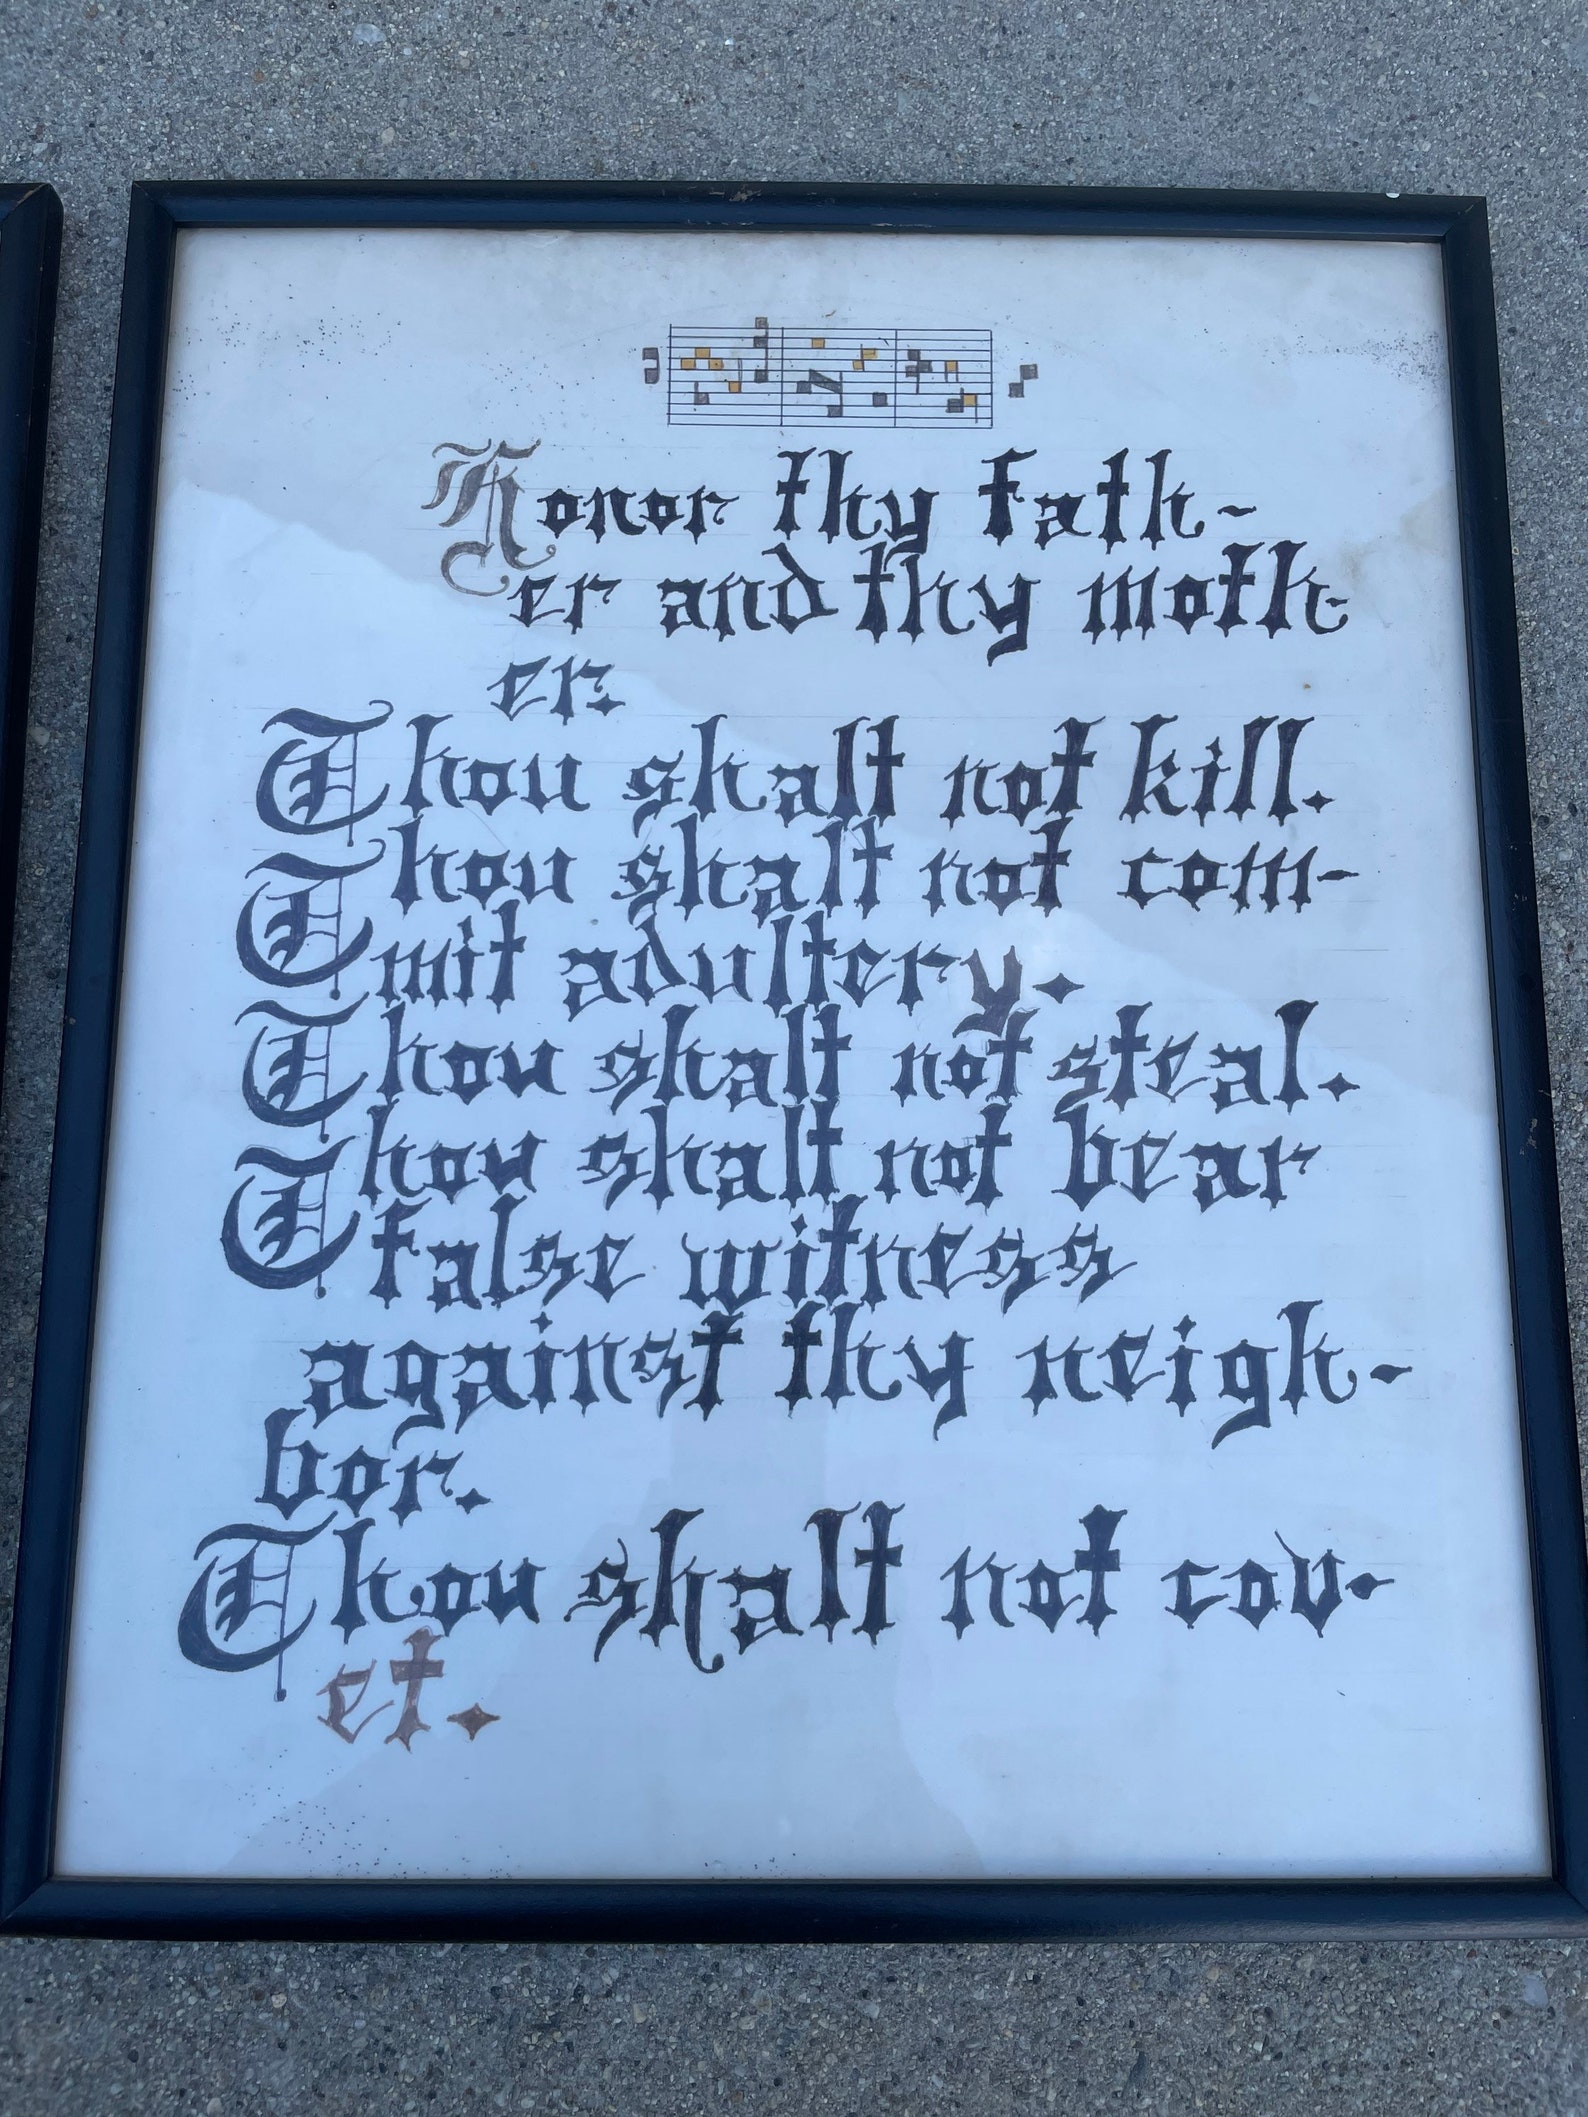 Honor thy fath-
er and thy moth-
er.
Thou shalt not kill.
Thou shalt not com-
mit adultery.
Thou shalt not steal.
Thou shalt not bear
false witness
against thy neigh-
bor.
Thou shalt not cov-
et.